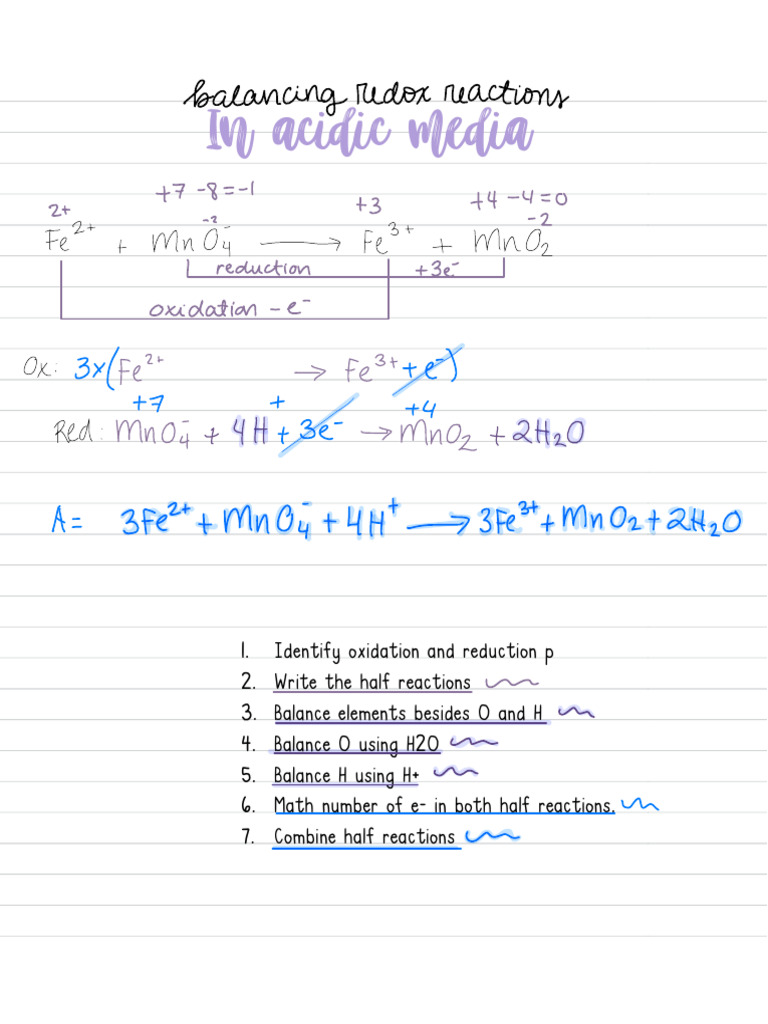 balancing redox reactions
In acidic media
2+ +7 -8=-1 +3 +4 -4=0
-2 -2
Fe²⁺ + MnO₄⁻ → Fe³⁺ + MnO₂
reduction +3e⁻
oxidation - e⁻
Ox: 3x(Fe²⁺ → Fe³⁺ + e⁻)
+7 + +4
Red: MnO₄⁻ + 4H + 3e⁻ → MnO₂ + 2H₂O
A= 3Fe²⁺ + MnO₄⁻ + 4H⁺ → 3Fe³⁺ + MnO₂ + 2H₂O
1. Identify oxidation and reduction p
2. Write the half reactions
3. Balance elements besides O and H
4. Balance O using H2O
5. Balance H using H+
6. Math number of e- in both half reactions.
7. Combine half reactions